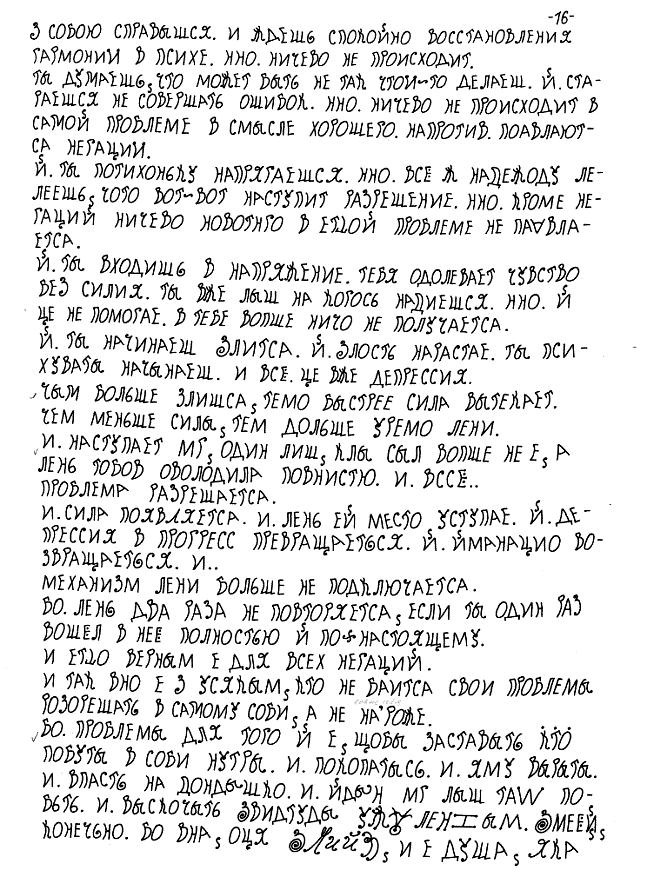 -16-
З СОБОЮ СПРАВЫШСЯ. И ЖДЕШЬ СПОКОЙНО ВОССТАНОВЛЕНИЯ
ГАРМОНИИ В ПСИХЕ. ННО. НИЧЕВО НЕ ПРОИСХОДИТ.
ТЫ ДУМАЕШЬ, ЧТО МОЖЕТ БЫТЬ НЕ ТАК ЧТОЙ-ТО ДЕЛАЕШ. Й. СТА-
РАЕШСЯ НЕ СОВЕРШАТЬ ОШИБОК. ННО. НИЧЕВО НЕ ПРОИСХОДИТ В
САМОЙ ПРОБЛЕМЕ В СМЫСЛЕ ХОРОШЕГО. НАПРОТИВ. ПОАВЛАЮТ-
СА НЕГАЦИИ.
Й. ТЫ ПОТИХОНЬКУ НАПРЯГАЕШСЯ. ННО. ВСЕ Ж НАДЕЖОДУ ЛЕ-
ЛЕЕШЬ, ЧОТО ВОТ-ВОТ НАСТУПИТ РАЗРЕШЕНИЕ. ННО. КРОМЕ НЕ-
ГАЦИЙ НИЧЕВО НОВОТНГО В ЕТЦОЙ ПРОБЛЕМЕ НЕ ПАВЛА-
ЕТСА.
Й. ТЫ ВХОДИШЬ В НАПРЯЖЕНИЕ. ТЕБЯ ОДОЛЕВАЕТ ЧУВСТВО
БЕЗ СИЛИЯ. ТЫ ВЖЕ ЛЫШ НА КОГОСЬ НАДИЕШСЯ. ННО. Й
ЦЕ НЕ ПОМОГАЕ. В ТЕБЕ ВОПШЕ НИЧО НЕ ПОЛУЧАЕТСА.
Й. ТЫ НАЧИНАЕШ ЗЛИТСА. Й. ЗЛОСТЬ НАРАСТАЕ. ТЫ ПСИ-
ХУВАТЫ НАЧЫНАЕШ. И ВСЕ. ЦЕ ВЖЕ ДЕПРЕССИЯ.
ЧЫМ БОЛЬШЕ ЗЛИШСА, ТЕМО БЫСТРЕЕ СИЛА ВЫТЕКАЕТ.
ЧЕМ МЕНЬШЕ СИЛЫ, ТЕМ ДОЛЬШЕ УРЕМО ЛЕНИ.
И. НАСТУПАЕТ МГ, ОДИН ЛИШ, КЛЫ СЫЛ ВОПШЕ НЕ Е, А
ЛЕНЬ ТОБОВ ОВОЛОДИЛА ПОВНИСТЮ. И. ВССЁ..
ПРОБЛЕМА РАЗРЕШАЕТСА.
И. СИЛА ПОЯВЛЯЕТСА. И. ЛЕНЬ ЕЙ МЕСТО УСТУПАЕ. Й. ДЕ-
ПРЕССИЯ В ПРОГРЕСС ПРЕВРАЩАЕТЬСЯ. Й. ЙМАНАЦИО ВО-
ЗВРАЩАЕТЬСЯ. И..
МЕХАНИЗМ ЛЕНИ БОЛЬШЕ НЕ ПОДКЛЮЧАЕТСА.
БО. ЛЕНЬ ДВА РАЗА НЕ ПОВТОРЯЕТСА, ЕСЛИ ТЫ ОДИН РАЗ
ВОШЕЛ В НЕЕ ПОЛНОСТЬЮ Й ПО-НАСТОЯЩЕМУ.
И ЕТЦО ВЕРНЫМ Е ДЛЯ ВСЕХ НЕГАЦИЙ.
И ТАК ВНО Е З УСЯКЫМ, КТО НЕ БАИТСА СВОИ ПРОБЛЕМЫ
РОЗОРЕШАТЬ В САМОМУ СОБИ, А НЕ НАРОЖЕ.
БО. ПРОБЛЕМЫ ДЛЯ ТОГО Й Е, ЩОБЫ ЗАСТАВЫТЬ КТО
ПОБУТЫ В СОБИ НУТРЫ. И. ПОКОПАТЫСЬ. И. ЯМУ ВЫРЫТЫ.
И. ВПАСТЬ НА ДОНДЫШКО. И. ЙДЫН МГ ЛЫШ ТАМ ПО-
БЫТЬ. И. ВЫСКОЧЫТЬ ЗВИДТУДЫ УЖУ ЛЕННЫМ. ЗМЕЕЙ,
КОНЕЧЬНО. БО ВНА, ОЦЯ ЗМИЙЗ, И Е ДУША, ЯКА